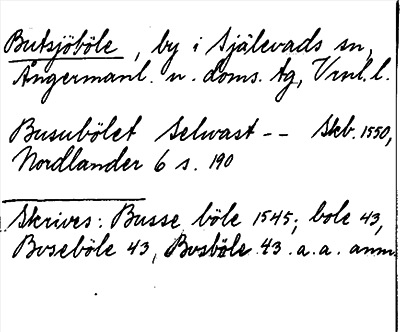 Butsjöböle, by i Själevads sn,
Ångermanl. n. doms. tg, Vrnl. l.
Busubölet Selwast -- Skb. 1550,
Nordlander 6 s. 190
Skrives: Busse böle 1545; bole 43,
Boseböle 43, Bosböle 43. a. a. anm